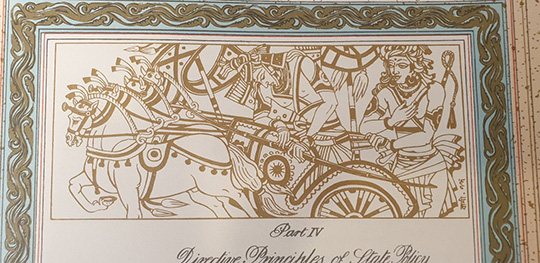 Part IV
Directive Principles of State Policy